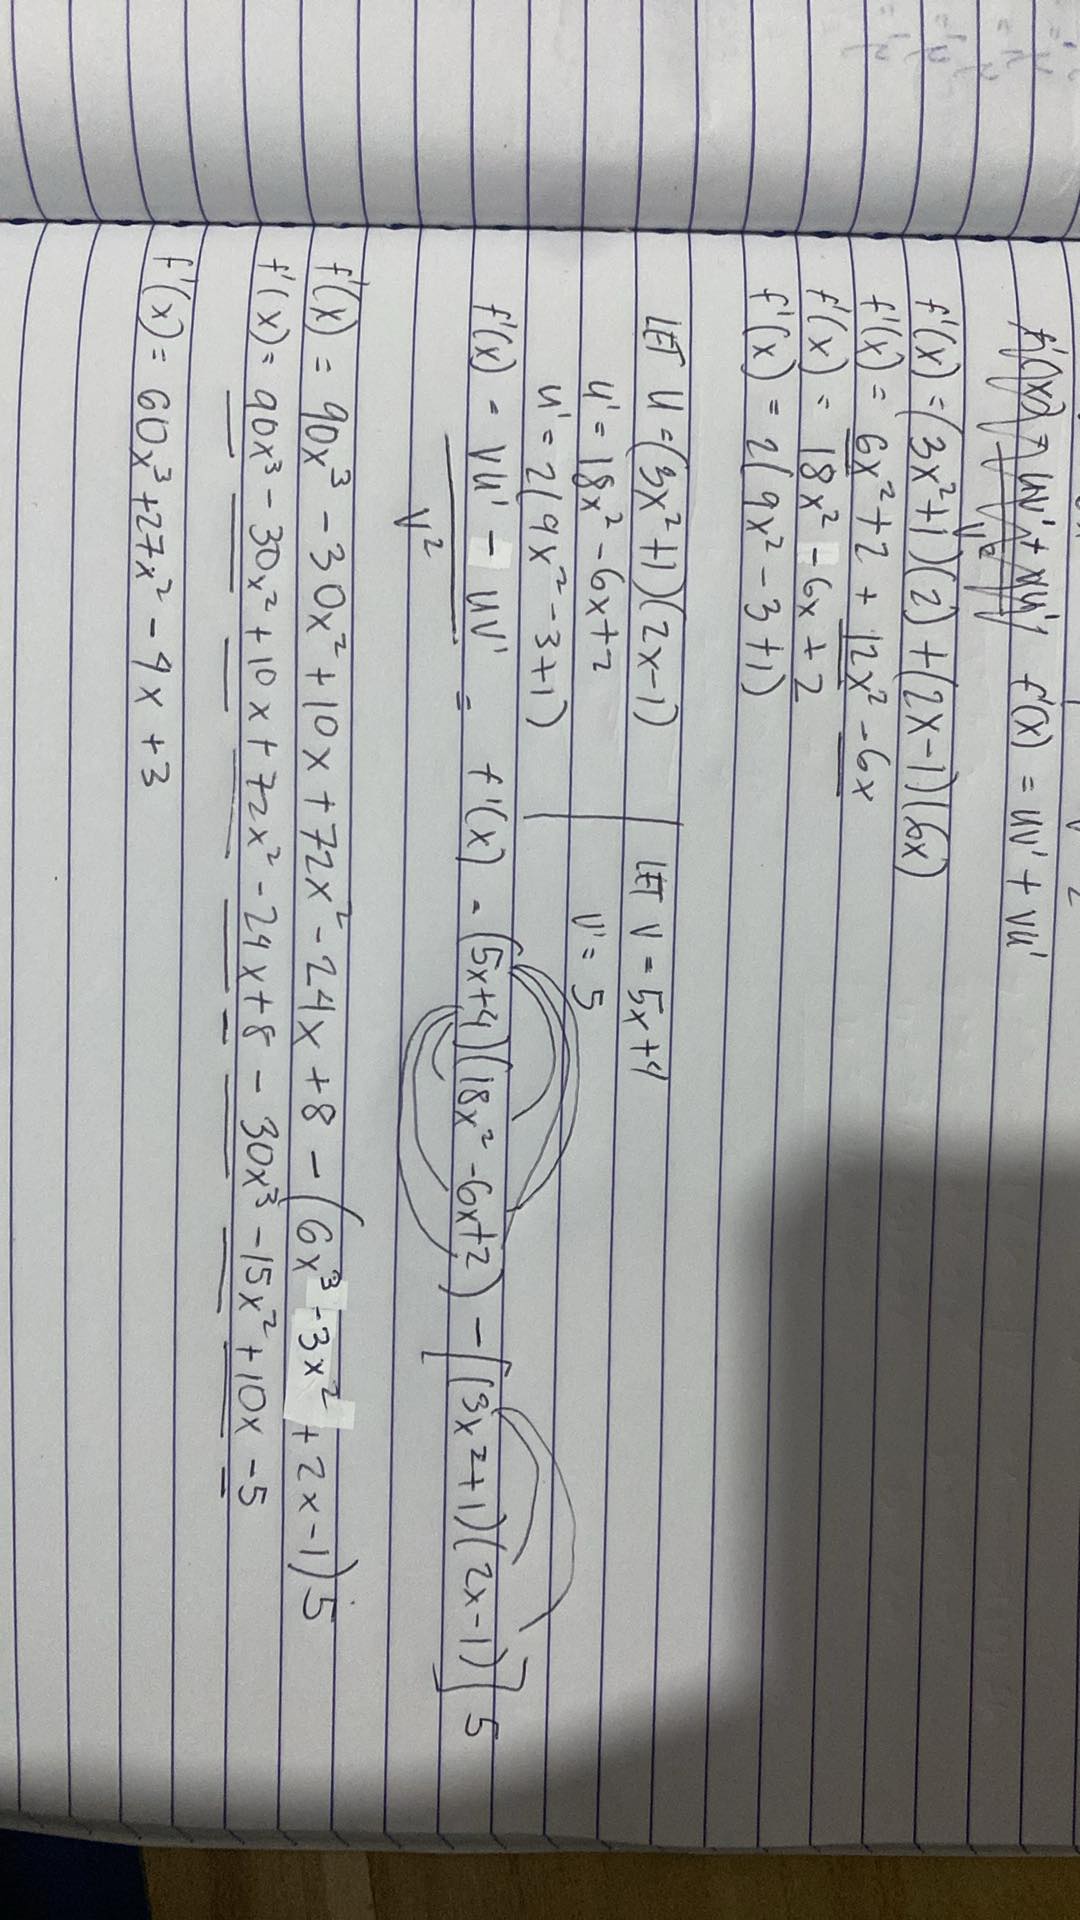 f'(x) = uv' + vu' f'(x) = uv' + vu'
v²
f'(x) = (3x²+1)(2) + (2x-1)(6x)
f'(x) = 6x²+2 + 12x² -6x
f'(x) = 18x² - 6x + 2
f'(x) = 2(9x² - 3 +1)
LET U = (3x²+1)(2x-1) LET V = 5x+4
U' = 18x² - 6x+2 V' = 5
U' = 2(9x² - 3+1)
f'(x) = VU' - UV' / V² = f'(x) = (5x+4)(18x² -6x+2) - [(3x²+1)(2x-1)] 5
f'(x) = 90x³ - 30x² + 10x + 72x² - 24x + 8 - (6x³ - 3x² + 2x - 1) 5
f'(x) = 90x³ - 30x² + 10x + 72x² - 24x + 8 - 30x³ - 15x² + 10x - 5
f'(x) = 60x³ + 27x² - 4x + 3